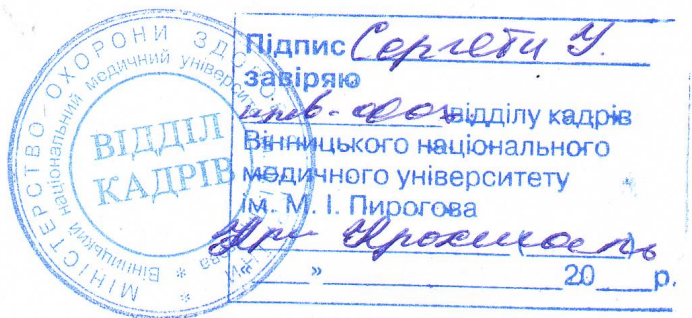 МІНІСТЕРСТВО ОХОРОНИ ЗДОРОВ
Вінницький національний медичний університет
ВІДДІЛ
КАДРІВ
Підпис Сергети У.
завіряю
відділу кадрів
Вінницького національного
медичного університету
ім. М. І. Пирогова
« » 20 р.